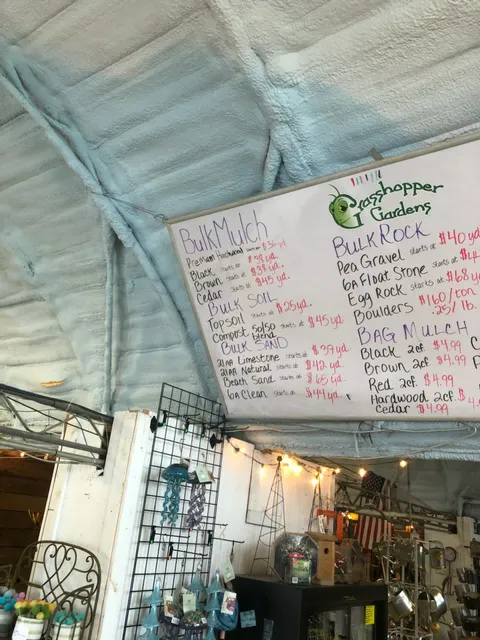 Grasshopper
Gardens
Bulk Mulch
Premium Hardwood $36 yd.
Black starts at $38 yd.
Brown starts at $38 yd.
Cedar starts at $45 yd.
Bulk Soil
Topsoil starts at $25 yd.
Compost 50/50 blend starts at $45 yd.
Bulk Sand
Limestone starts at
Natural starts at $42 yd.
Beach Sand starts at $65 yd.
6A Clean starts at $44 yd.
Bulk Rock
Pea Gravel starts at $40 yd
6A Float Stone starts at
Egg Rock starts at $68 y
Boulders $160/ton
.25/lb.
Bag Mulch
Black 2cf. $4.99
Brown 2cf. $4.99
Red 2cf. $4.99
Hardwood 2cf.
Cedar $4.99